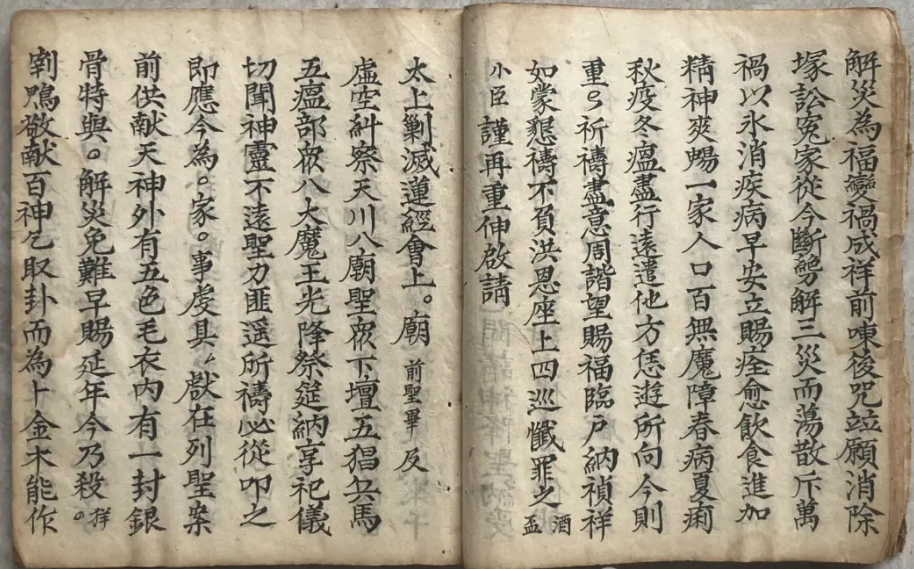 解災為福變禍成祥前唻後咒竝願消除
塚訟冤家從今斷剪解三災而蕩散斥萬
禍以氷消疾病早安立賜痊愈飲食進加
精神爽暢一家人口百無魔障春病夏痢
秋疫冬瘟盡行遠遣他方恁遊所向今則
重〻祈禱盡意周諧望賜福臨戶納禎祥
如蒙懇禱不負洪恩座上四巡懺罪之酒盃
小臣謹再重伸啟請
太上剿滅蓮經會上。廟前聖畢及
虛空糾察天川八廟聖眾下壇五猖兵馬
五瘟部眾八大魔王光降祭筵納享祀儀
切聞神靈不遠聖力匪遥所禱必從叩之
即應今為。家。事虔具〻獻在列聖案
前供献天神外有五色毛衣内有一封銀
骨特與。解災免難早賜延年今乃殺。牲
割鴆敬献百神乞取卦而為卜金木能作